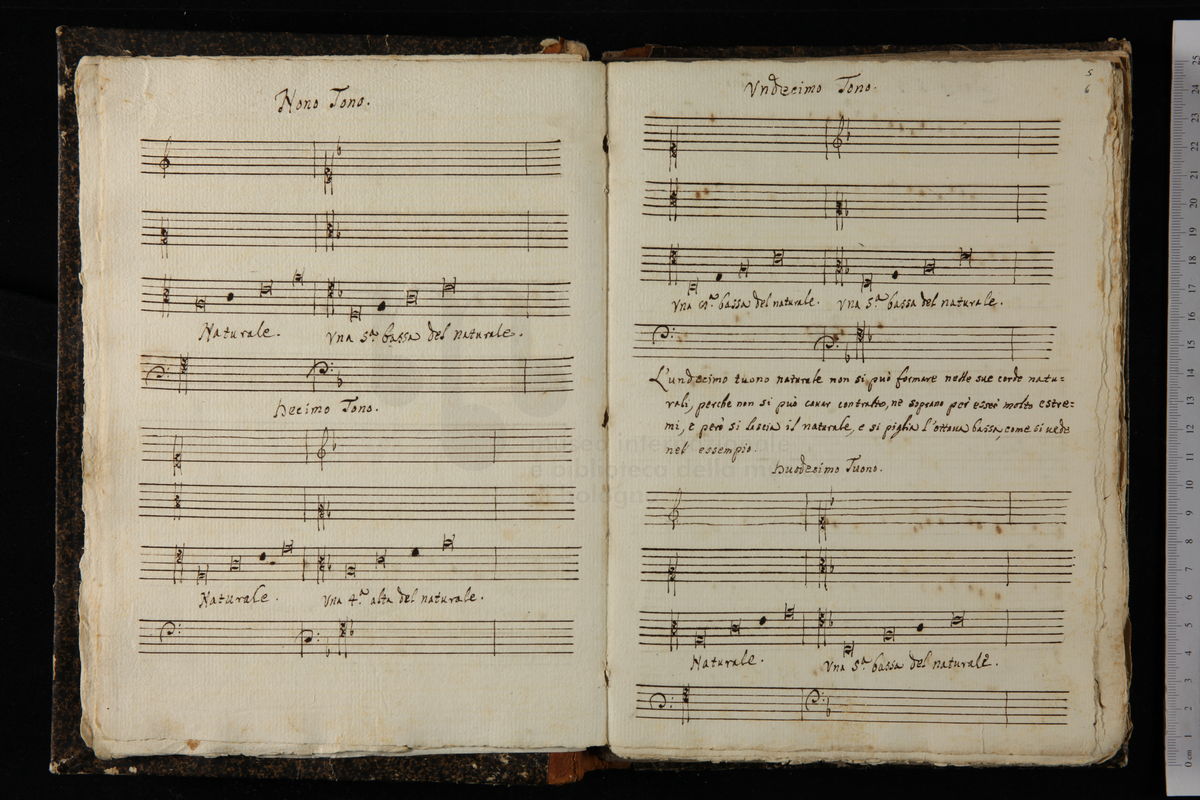 Nono Tono.
Naturale.
Vna 5ª bassa del naturale.
Decimo Tono.
Naturale.
Vna 4ª alta del naturale.
5
6
Vndecimo Tono.
Vna bassa del naturale.
Vna 5ª bassa del naturale.
L'undecimo tuono naturale non si può formare nelle sue corde natu=
rali, perche non si può cauar contralto, ne soprano per esser molto estre=
mi, e però si lascia il naturale, e si piglia l'ottaua bassa, come si uede
nel essempio.
Duodesimo Tuono.
Naturale.
Vna 5ª bassa del naturale.
museo internazionale
e biblioteca della musica
di bologna
25
24
23
22
21
20
19
18
17
16
15
14
13
12
11
10
9
8
7
6
5
4
3
2
1
0 cm